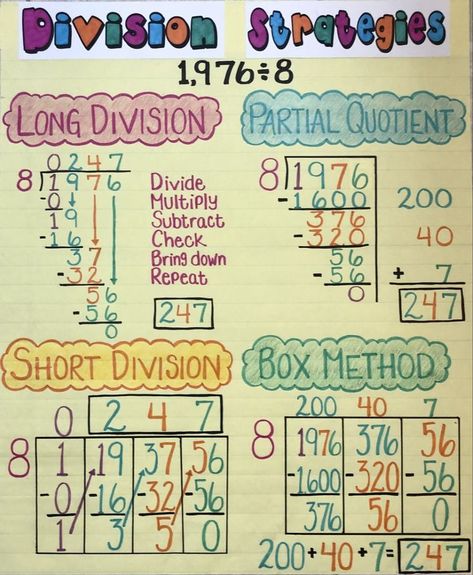 Division Strategies
1,976÷8
LONG DIVISION
0247
8 1976
-0
19
-16
37
-32
56
-56
0
Divide
Multiply
Subtract
Check
Bring down
Repeat
247
PARTIAL QUOTIENT
8 1976
-1600 200
376
-320 40
56
-56 + 7
0 247
SHORT DIVISION
0 2 4 7
8 1 19 37 56
-0 -16 -32 -56
1 3 5 0
BOX METHOD
200 40 7
8 1976 376 56
-1600 -320 -56
376 56 0
200+40+7= 247